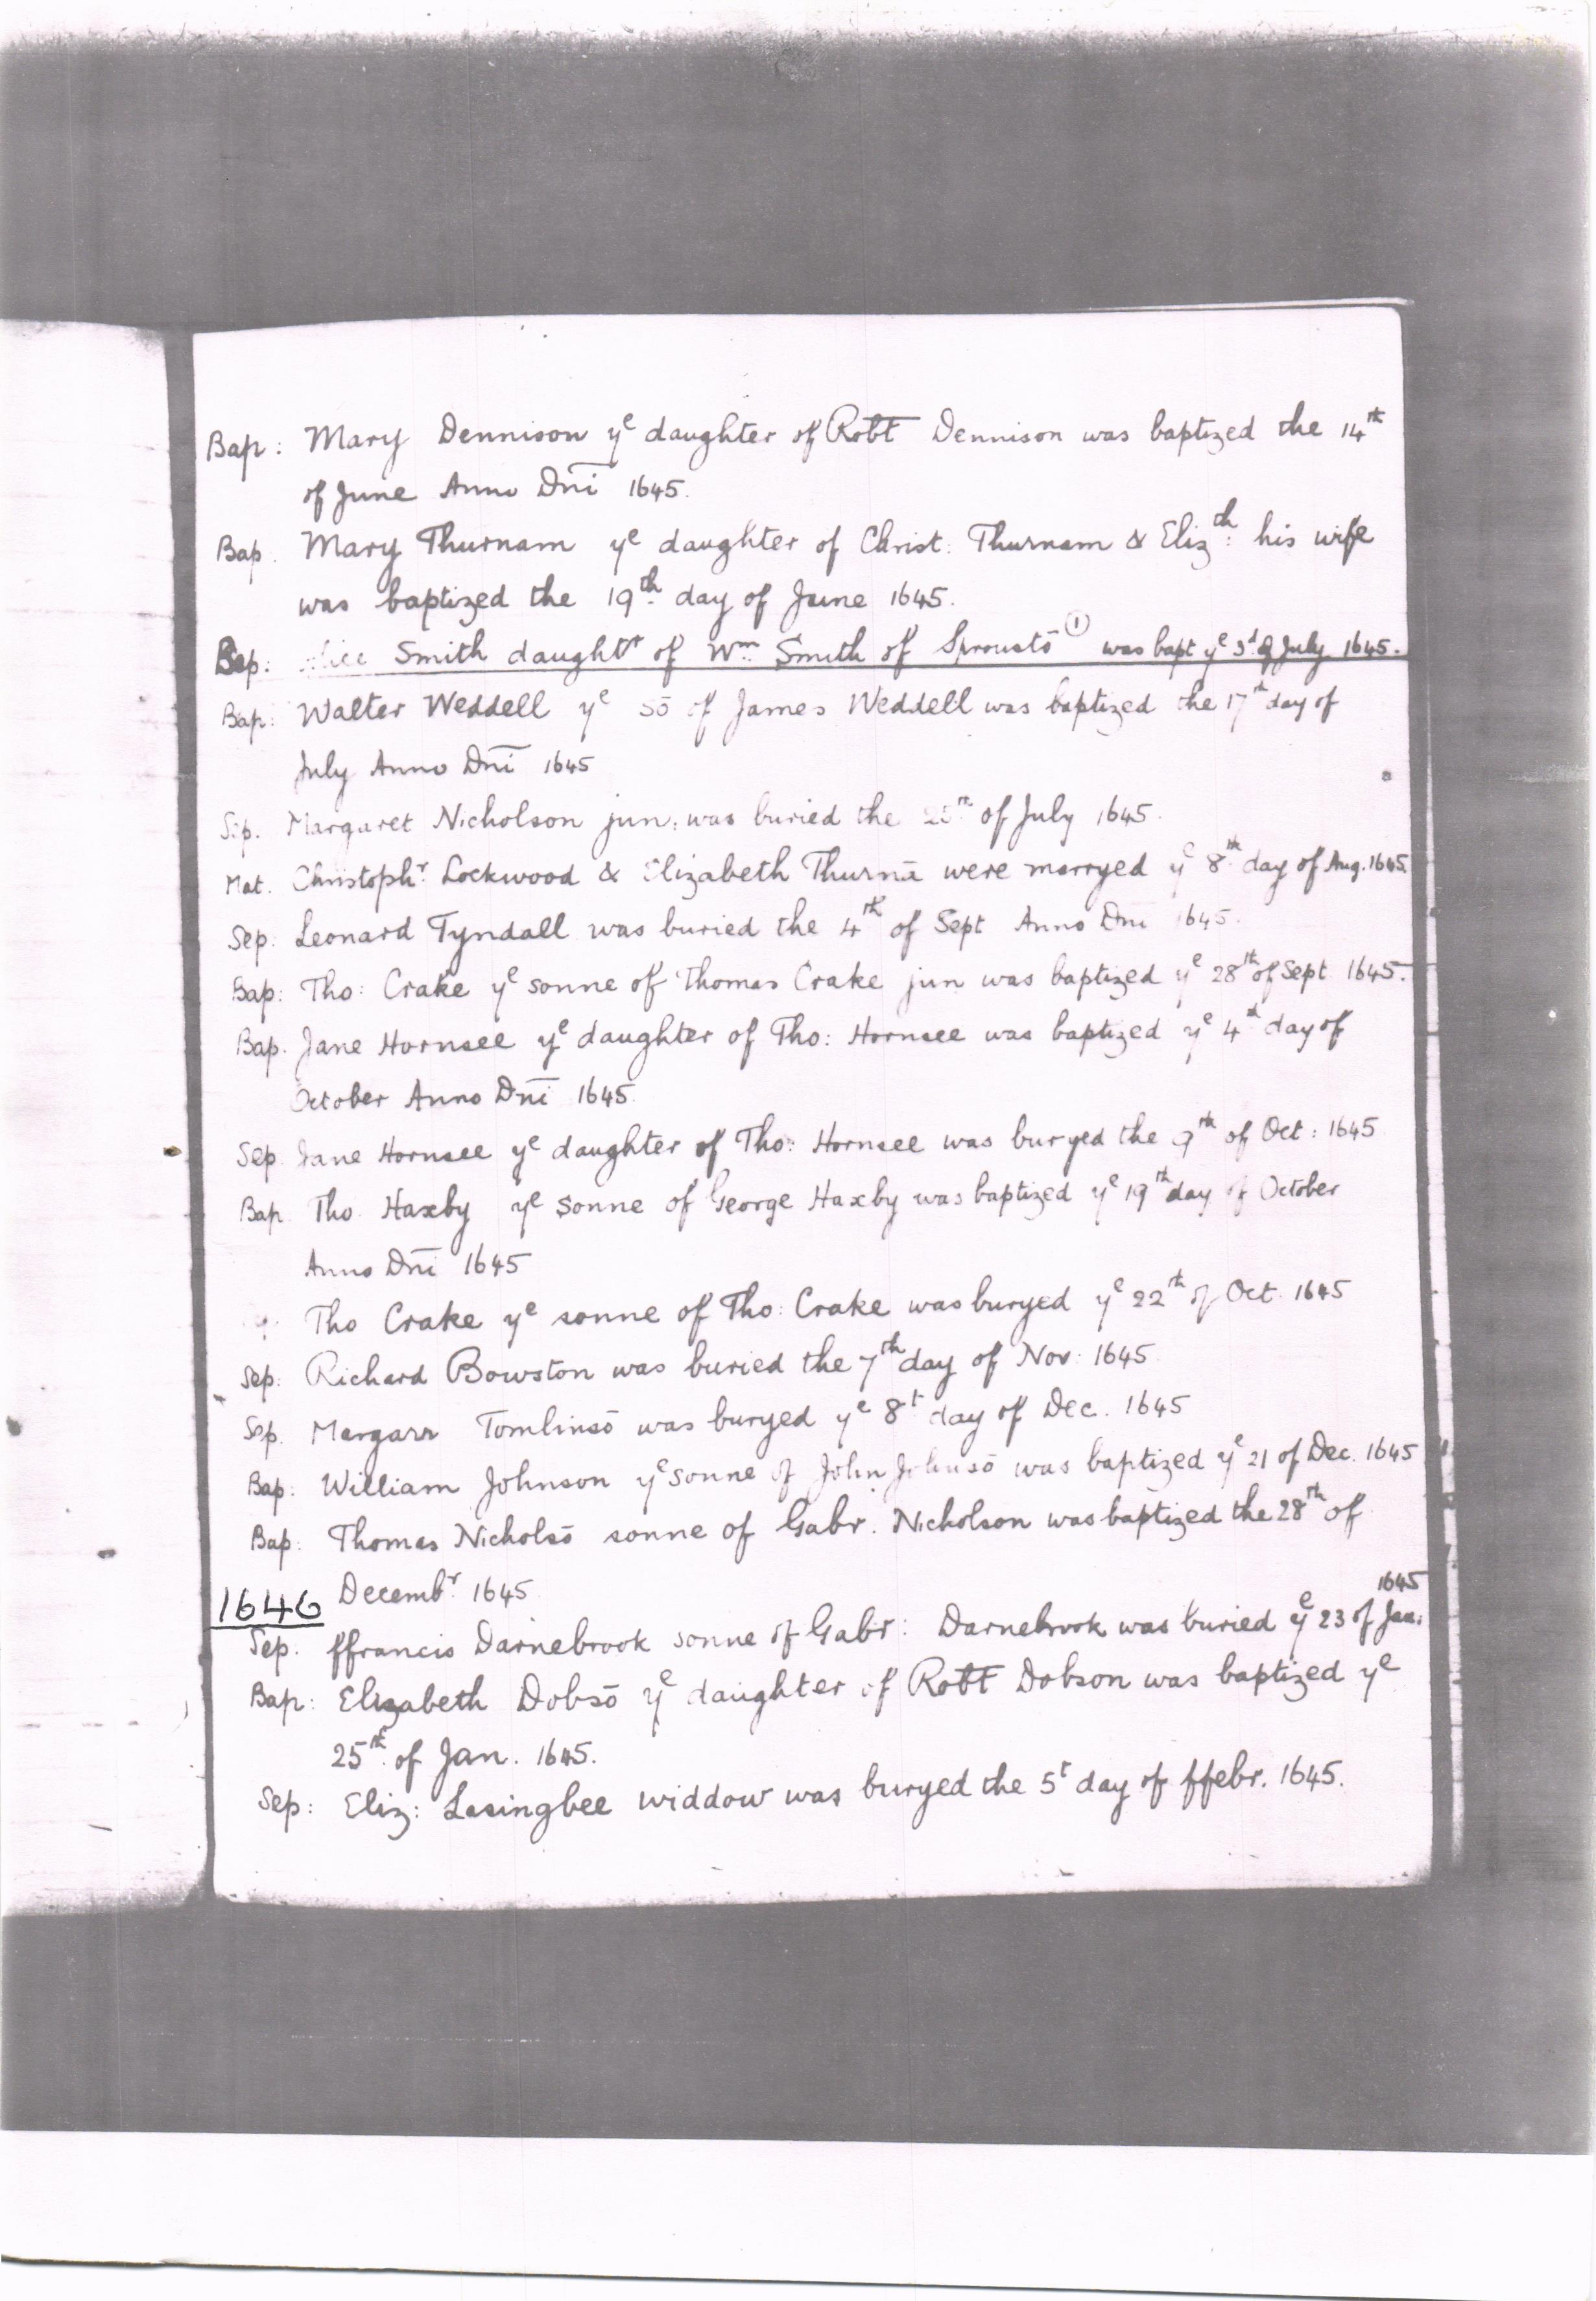 Bap: Mary Dennison yᵉ daughter of Robt̅ Dennison was baptized the 14ᵗʰ
of June Anno Dn̅i 1645.
Bap. Mary Thurnam yᵉ daughter of Christ: Thurnam & Elizᵗʰ: his wife
was baptized the 19ᵗʰ day of June 1645.
Bap: Smith daughtʳ of Wᵐ Smith of Sproustō ① was bapt yᵉ 3ᵈ of July 1645.
Bap: Walter Weddell yᵉ sō of James Weddell was baptized the 17ᵗʰ day of
July Anno Dn̅i 1645
Sep. Margaret Nicholson jun: was buried the of July 1645.
Mat. Christophʳ Lockwood & Elizabeth Thurnā were marryed yᵉ 8ᵗʰ day of Aug. 1645
Sep: Leonard Tyndall was buried the 4ᵗʰ of Sept Anno Dni 1645.
Bap: Tho: Crake yᵉ sonne of Thomas Crake jun was baptized yᵉ 28ᵗʰ of Sept 1645.
Bap. Jane Hornsee yᵉ daughter of Tho: Hornsee was baptized yᵉ 4ᵗʰ day of
October Anno Dn̅i 1645.
Sep. Jane Hornsee yᵉ daughter of Tho: Hornsee was buryed the 9ᵗʰ of Oct: 1645
Bap Tho Haxby yᵉ sonne of George Haxby was baptized yᵉ 19ᵗʰ day of October
Anno Dn̅i 1645
Tho Crake yᵉ sonne of Tho: Crake was buryed yᵉ 22ᵗʰ of Oct. 1645
Sep: Richard Bowston was buried the 7ᵗʰ day of Nov: 1645
Sep. Margarr Tomlinsō was buryed yᵉ 8ᵗ day of Dec. 1645
Bap: William Johnson yᵉ sonne of John Johnsō was baptized yᵉ 21 of Dec. 1645
Bap: Thomas Nicholsō sonne of Gabr. Nicholson was baptized the 28ᵗʰ of
Decembʳ 1645
1646
1645
Sep. ffrancis Darnebrook sonne of Gabr: Darnebrook was buried yᵉ 23 of Jan:
Bap: Elizabeth Dobsō yᵉ daughter of Robt̅ Dobson was baptized yᵉ
25ᵗʰ of Jan. 1645.
Sep: Eliz: Lasingbee widdow was buryed the 5ᵗ day of ffebr. 1645.